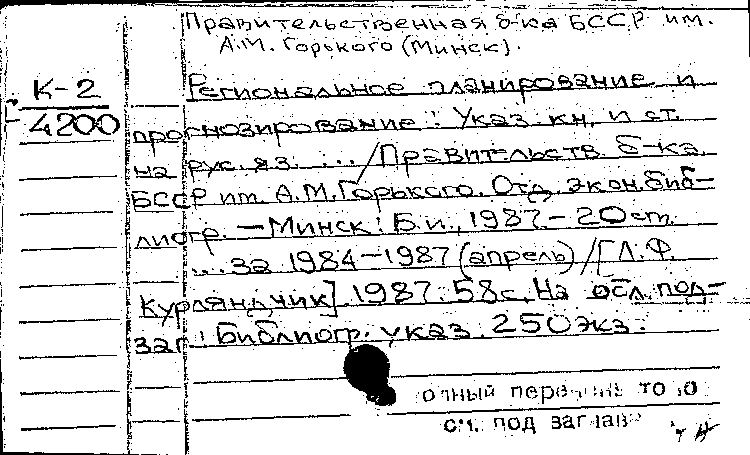 Правительственная б-ка БССР им.
А.М. Горького (Минск).
К-2
4200
Региональное планирование и
прогнозирование: Указ. кн. и ст.
на рус. яз. ... / Правительств. б-ка
БССР им. А.М. Горького. Отд. экон. биб-
лиогр. — Минск: Б.и., 1987. — 20 см.
... за 1984-1987 (апрель) / [Л.Ф.
Курляндчик]. 1987. 58 с. На обл. под-
заг.: Библиогр. указ. 250 экз.
см. под